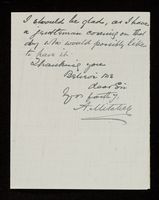 I should be glad, as I have
a gentleman coming on that
day who would possibly like
to have it.
Thanking you
Believe me
dear Sir
Yrs faithfy.
A. Mitchell